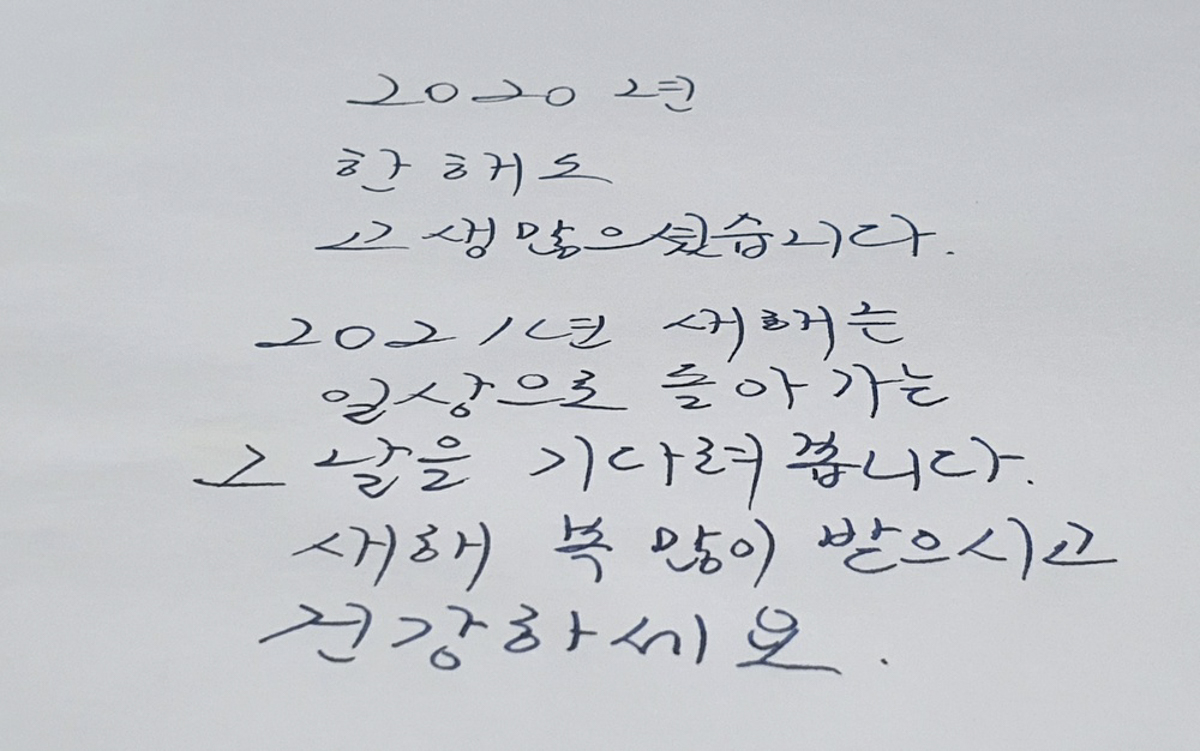 2020년
한 해도
고생많으셨습니다.
2021년 새해는
일상으로 돌아가는
그 날을 기다려 봅니다.
새해 복 많이 받으시고
건강하세요.